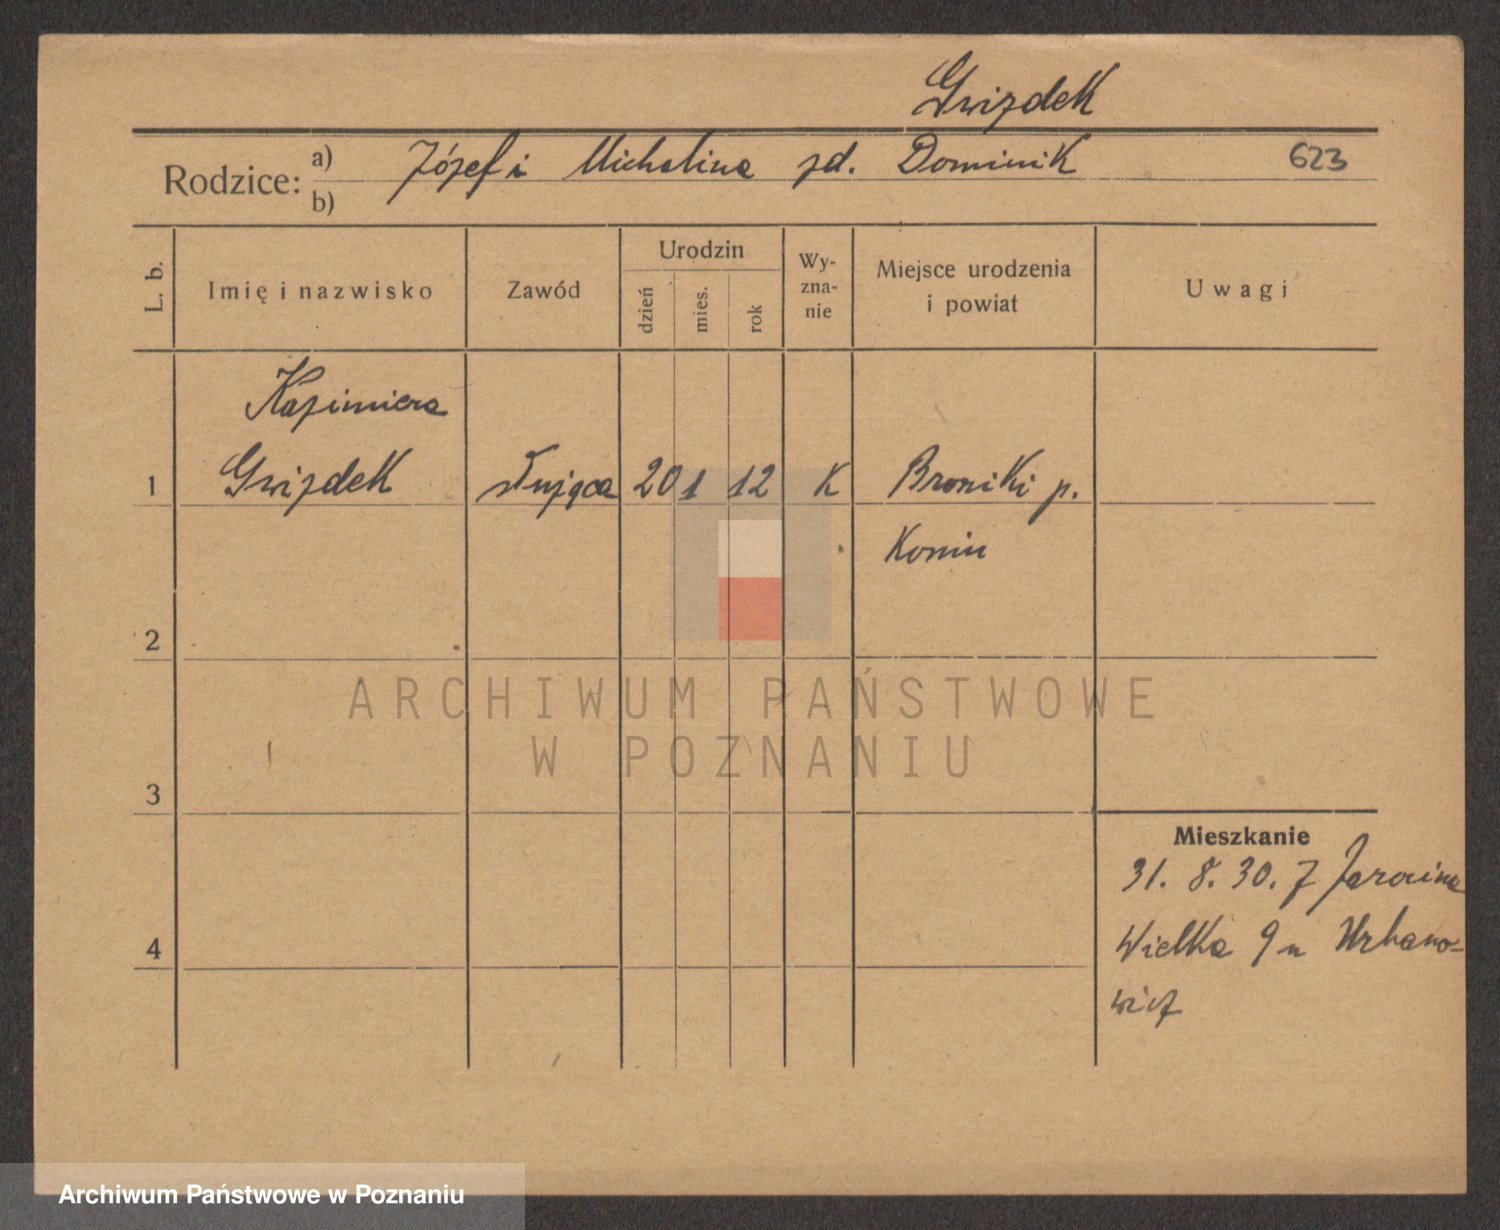 Gwizdek
Rodzice: a) Józef i Michalina zd. Dominik 623
b)
L. b. Imię i nazwisko Zawód Urodzin dzień mies. rok Wy-zna-nie Miejsce urodzenia i powiat Uwagi
Kazimiera
1 Gwizdek służąca 20 1 12 K Broniki p.
Konin
2
ARCHIWUM PAŃSTWOWE
W POZNANIU
3
Mieszkanie
31. 8. 30. z Jarocina
4 Wielka 9 u Urbano-
wicz
Archiwum Państwowe w Poznaniu